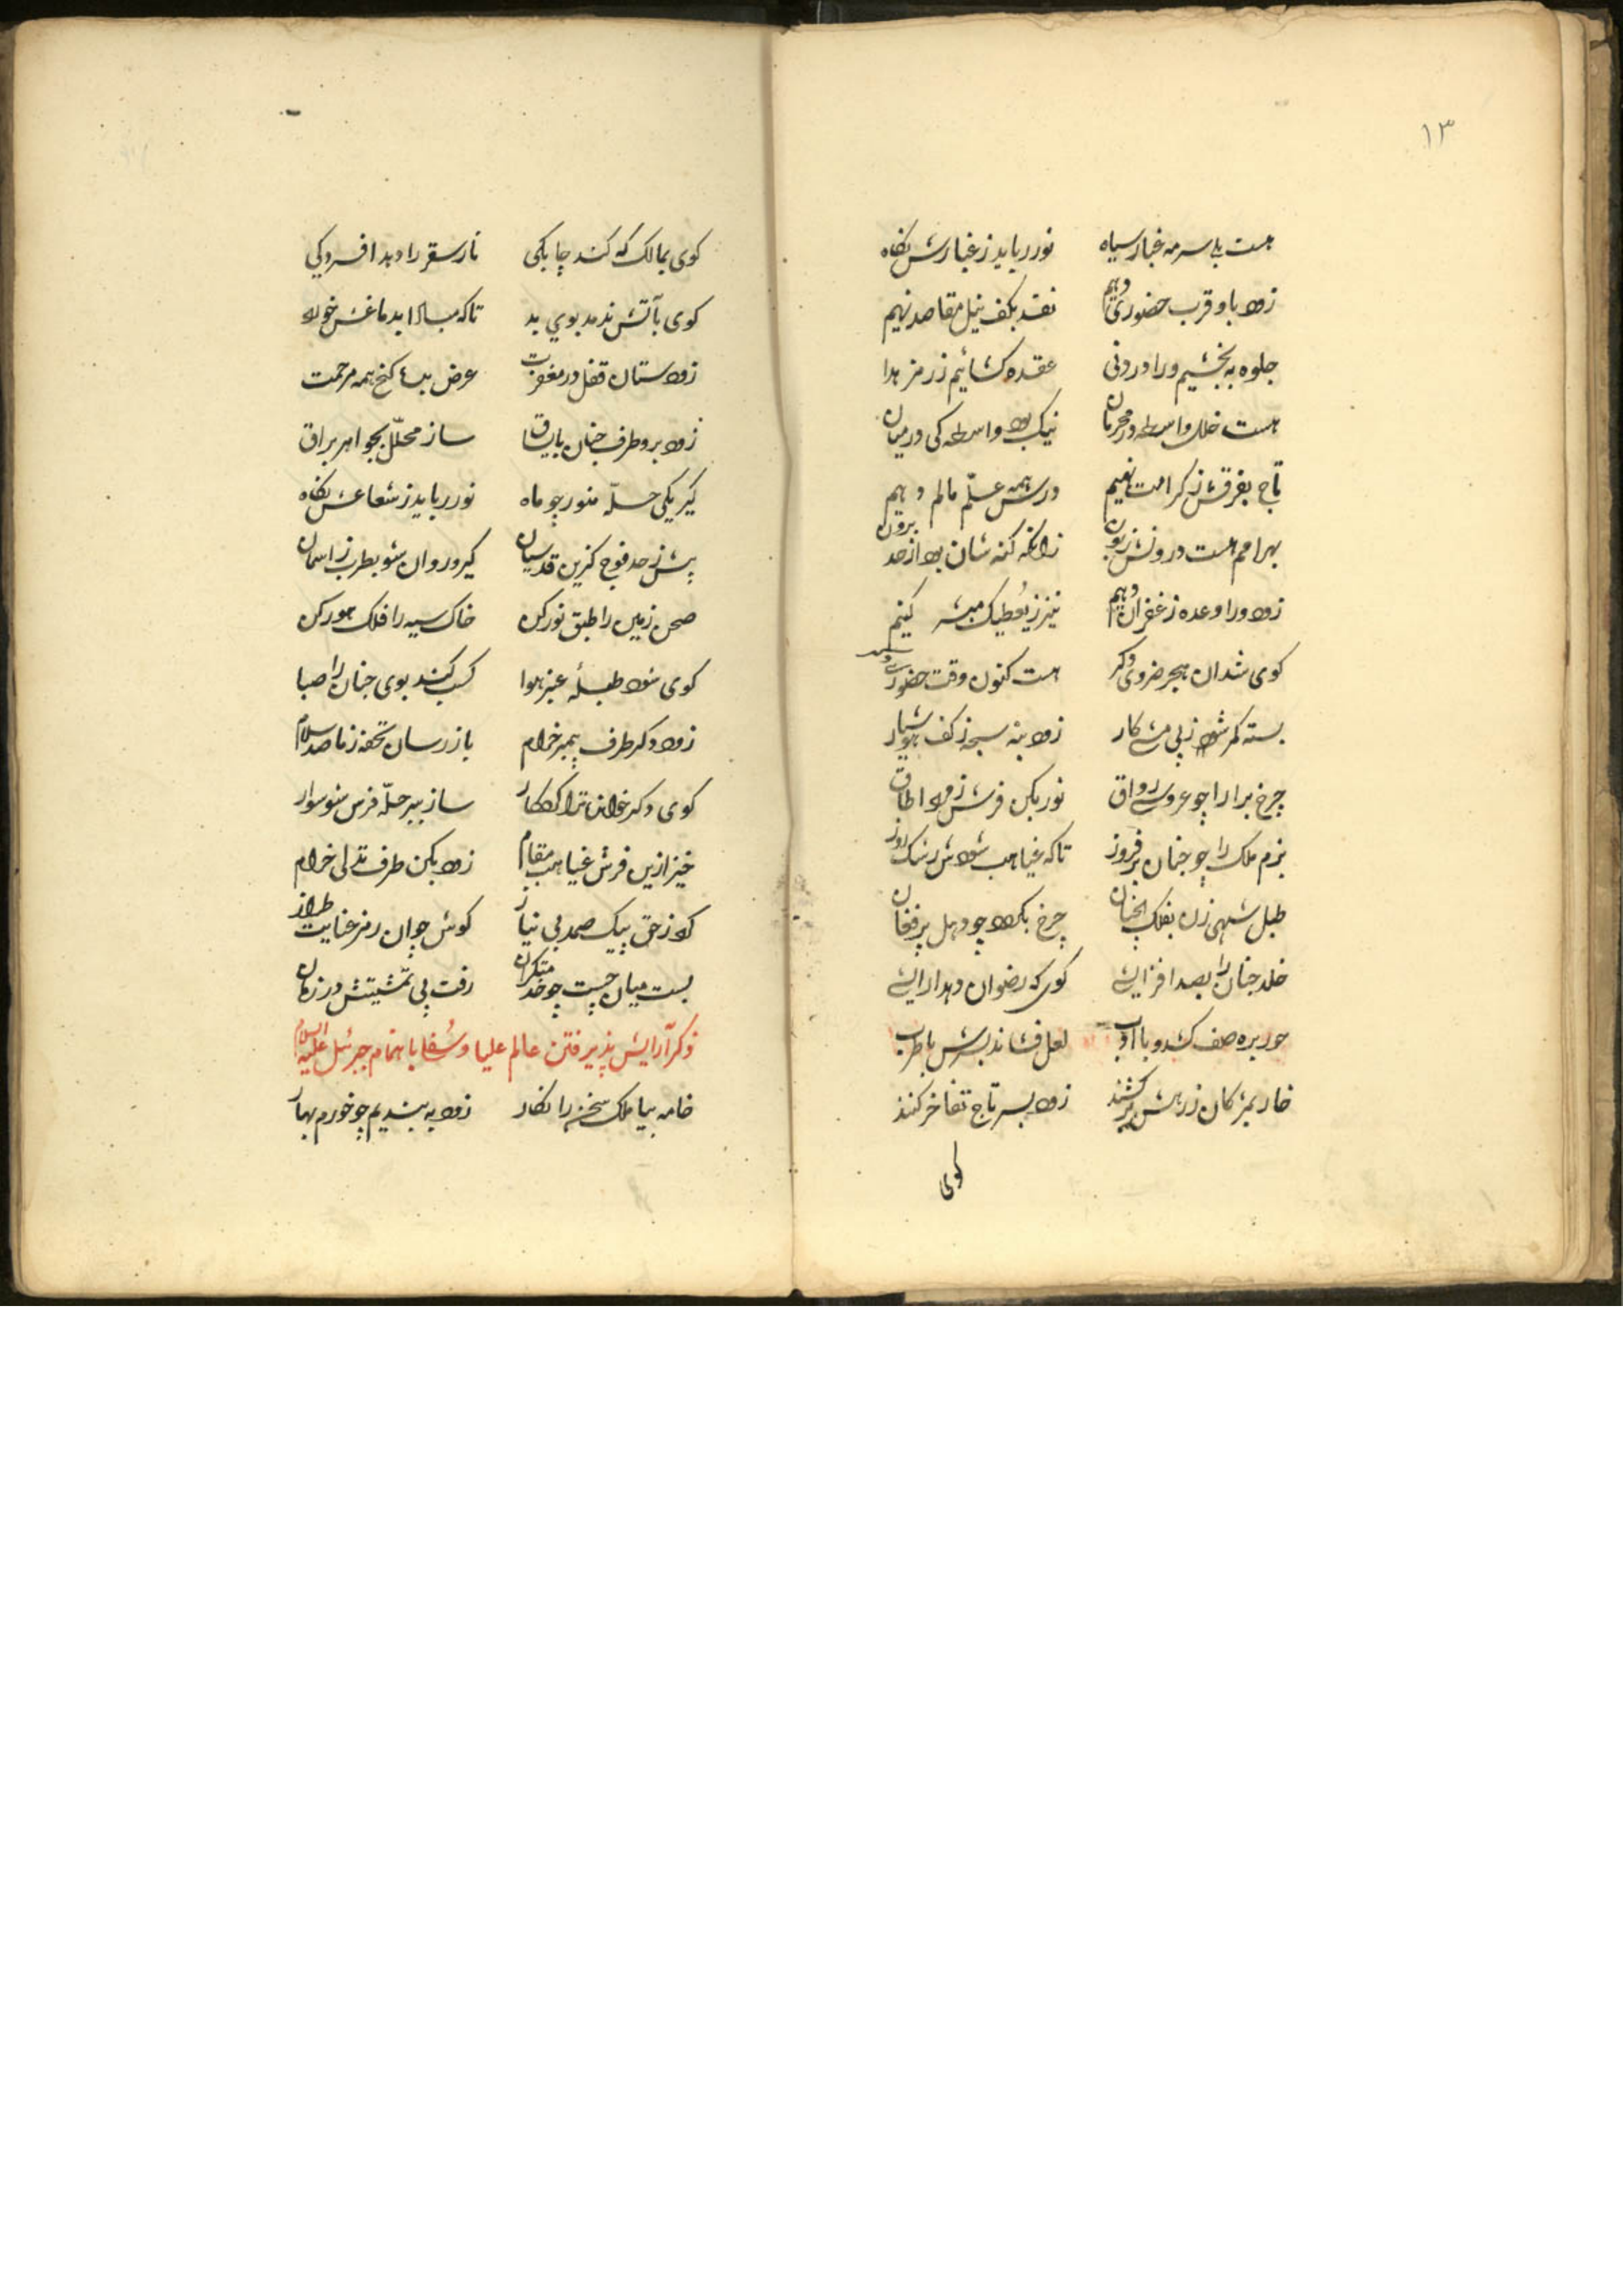 ۱۳
هست بلی سرمه غبار سیاه نور رباید ز غبارش نکاه
زود باو قرب حضوری دهیم نقد بکف نیل مقاصد نهیم
جلوه به بخشیم ورا در دنی عقده کشائیم ز رمز هدا
هست خلل واسطه در محرمان نیک بود واسطه کی در میان
تاج بفرقش ز کرامت نهیم درس همه علّم مالم دهیم
بهر امم هست درونش زبون زانکه کنه شان بود از حد برون
زود ورا وعده ز غفران دهیم نیز ز یُعطیک مبشر کنیم
کوی شد ان هجر ضروی دکر هست کنون وقت حضور
بسته کمر شو ز پی مشی کار زود بنه سبحه ز کف هوشیار
چرخ برارا چو عروسی رواق نور بکن فرش اطاق
بزم ملک را چو جنان بر فروز تاکه غیاهب شود ش رشک روز
طبل شهی زن بفلک انچنان چرخ بکرد چو دهل پر فغان
خلد جنان را بصد افزایشی کوی که رضوان دهد ارایشی
حور بره صف کشد و با ادب لعل فشاند بسرش با طرب
خار بمژکان ز رهش بر کشند زود بسر تاج تفاخر کنند
کوی
کوی بمالک که کند چابکی نار سقر را دهد افسردکی
کوی بآتش ندمد بوی بد تاکه مبادا بدماغش خورد
زود ستان قفل در مغفرت عرض بده کنج همه مرحمت
زود برو طرف جنان باوثاق ساز محلّل بجواهر براق
کیر یکی حلّه منور چو ماه نور رباید ز شعاعش نکاه
پیش ز حد فوج کزین قدسیان کیر و روان شو بطرب ز اسمان
صحن زمین را طبق نور کن خاک سیه را فلک هور کن
کوی شود طبلهٔ عنبر هوا کسب کند بوی جنان را صبا
زود دکر طرف پیمبر خرام باز رسان تحفه ز ما صد سلام
کوی دکر خواند ترا کردکار ساز ببر حلّه فرس شو سوار
خیز ازین فرش غیاهب مقام زود بکن طرف تدلی خرام
کرد ز حق پیک صمد بی نیاز کوش چو ان رمز عنایت طراز
بست میان چست چو خدمتکران رفت پی تمشیتش در زمان
ذکر آرایش پذیرفتن عالم علیا و سُفلا باهتمام جبرئیل علیه السلام
خامه بیا ملک سخن را نکار زود به بندیم چو خورم بهار